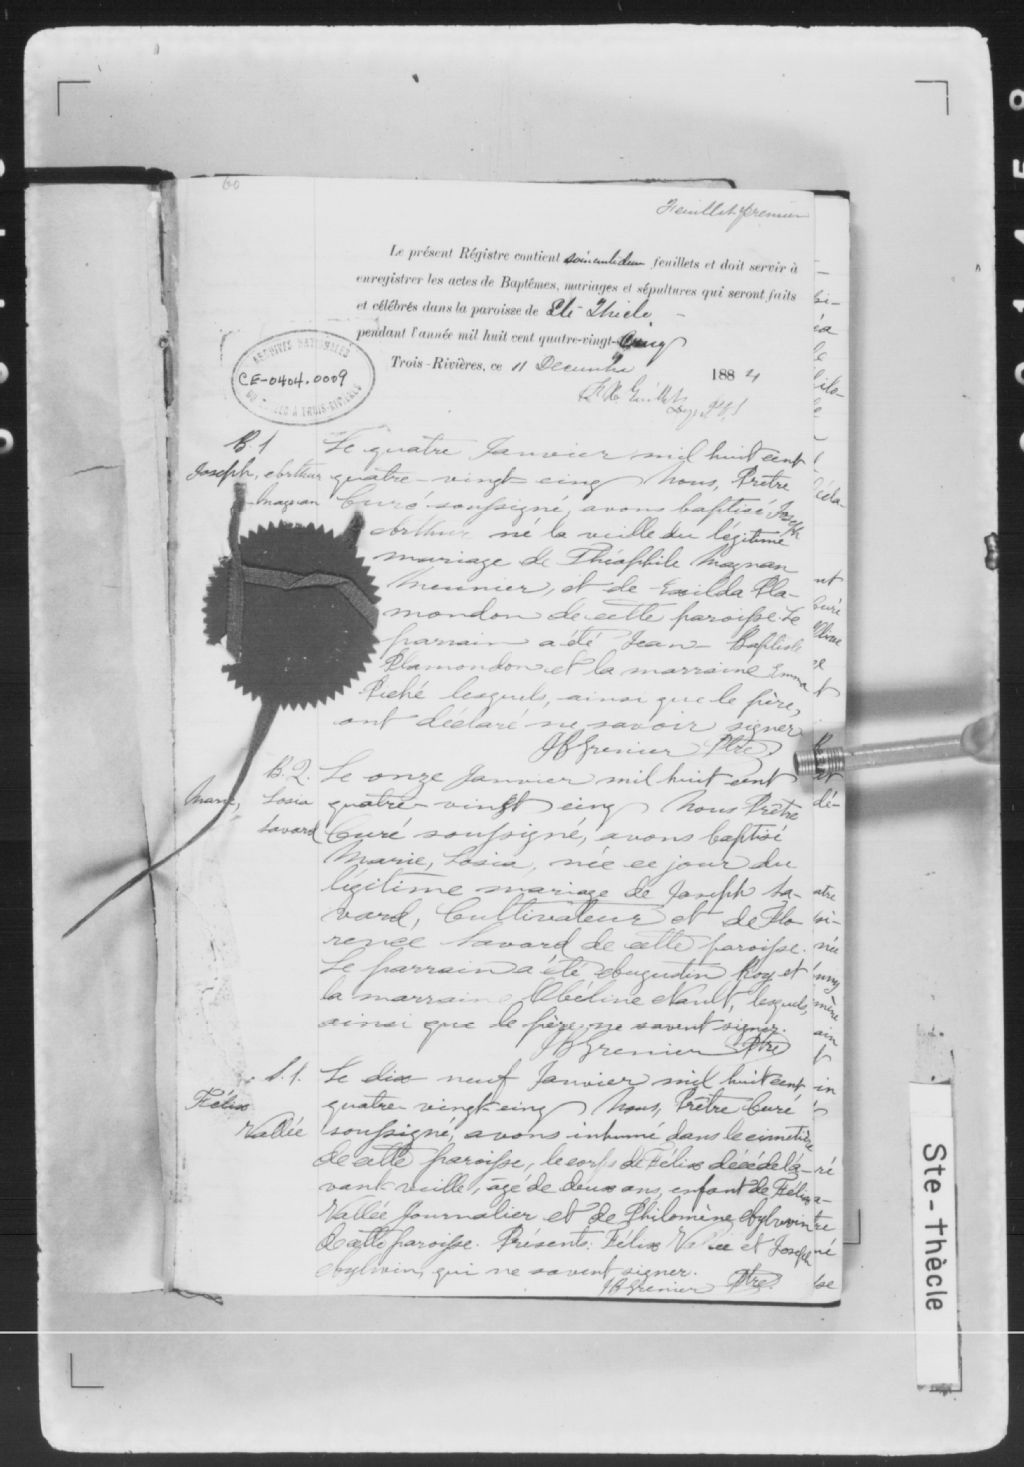 60
Feuillet premier
Le présent Régistre contient soixante deux feuillets et doit servir à
enregistrer les actes de Baptêmes, mariages et sépultures qui seront faits
et célébrés dans la paroisse de Ste Thècle
pendant l'année mil huit cent quatre-vingt-cinq
Trois-Rivières, ce 11 Decembre 1884
ARCHIVES NATIONALES
CE-0404.0009
DU QUÉBEC À TROIS-RIVIÈRES
B. 1
Joseph, Arthur
Magnan
Le quatre Janvier mil huit cent
quatre-vingt cinq Nous, Prêtre
Curé soussigné, avons baptisé Joseph
Arthur né la veille du légitime
mariage de Théophile Magnan
Meunier, et de Exilda Pla-
mondon de cette paroisse Le
parrain a été Jean-Baptiste
Plamondon et la marraine Emma
Piché lesquels, ainsi que le père,
ont déclaré ne savoir signer
JB Grenier Ptre.
B. 2.
Marie, Losia
Savard
Le onze Janvier mil huit cent
quatre-vingt cinq Nous Prêtre
Curé soussigné, avons baptisé
Marie, Losia, née ce jour du
légitime mariage de Joseph Sa-
vard, Cultivateur et de Flo
rence Savard de cette paroisse.
Le parrain a été Augustin Roy et
la marraine Obéline Nault, lesquels,
ainsi que le père ne savent signer.
JB Grenier Ptre
S. 1.
Félix
Vallée
Le dix neuf Janvier mil huit cent
quatre-vingt-cinq Nous, Prêtre Curé
soussigné, avons inhumé dans le cimetière
de cette paroisse, le corps de Félix décédé l'a-
vant-veille, âgé de deux ans, enfant de Félix
Vallée Journalier et de Philomène Aylwin
de cette paroisse. Présents: Félix Vallée et Joseph
Aylwin, qui ne savent signer.
JB Grenier Ptre.
Ste-Thècle